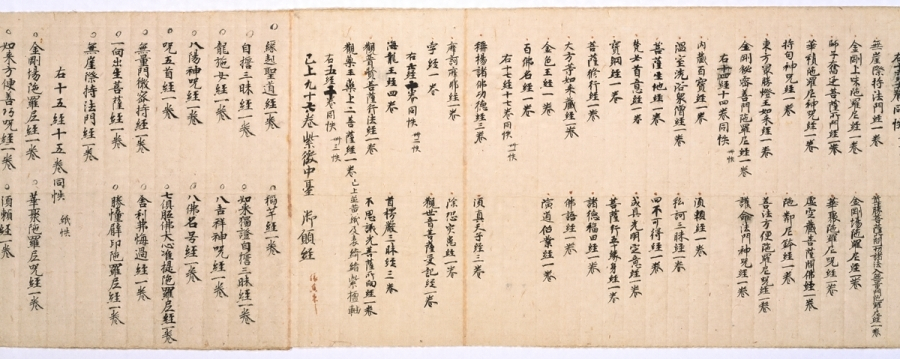 無崖際持法門經一卷 尊勝菩薩所問諸法入無量門陀羅尼經一卷
金剛上味陀羅尼經一卷 金剛場陀羅尼經一卷
師子奮迅菩薩所問經一卷 華聚陀羅尼呪經一卷
華積陀羅尼神呪經一卷 虛空藏菩薩問佛經一卷
持句神呪經一卷 陁鄰尼鉢經一卷
東方最勝燈王如來經一卷 善法方便陀羅尼呪經一卷
金剛秘密善門陀羅尼經一卷 護命法門神呪經一卷
右十四經十四卷同帙 卌帙
內藏百寶經一卷 須賴經一卷
溫室洗浴衆僧經一卷 私訶三昧經一卷
菩薩生地經一卷 四不可得經一卷
梵女首意經一卷 成具光明定意經一卷
寶網經一卷 諸德福田經一卷
菩薩修行經一卷 菩薩行五十緣身經一卷
大方等如來藏經一卷 佛語經一卷
金色王經一卷 演道俗業經一卷
百佛名經一卷
右十七經十七卷同帙 卌一帙
稱揚諸佛功德經三卷 須真天子經三卷
摩訶摩耶經一卷 除恐灾患經一卷
孛經一卷 觀世音菩薩受記經一卷
右六經十卷同帙 卌二帙
海龍王經四卷 首楞嚴三昧經三卷
觀普賢菩薩行法經一卷 不思議光菩薩所問經一卷
觀藥王藥上二菩薩經一卷 已上並黃紙及表綺緒紫檀軸
右五經十卷同帙 卌三帙
已上九十六卷紫微中臺 御願經
緣起聖道經一卷 稻芉經一卷
自誓三昧經一卷 如來獨證自誓三昧經一卷
龍施女經一卷 八吉祥神呪經一卷
八陽神呪經一卷 八佛名号經一卷
呪五首經一卷 七俱胝佛大心准提陀羅尼經一卷
無量門微密持經一卷 舍利弗悔過經一卷
一向出生菩薩經一卷 勝幢臂印陀羅尼經一卷
無崖際持法門經一卷
右十五經十五卷同帙 紙帙
金剛場陀羅尼經一卷 華聚陀羅尼呪經一卷
如來方便善巧呪經一卷 須賴經一卷